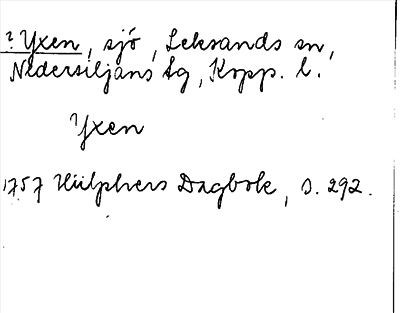 ? Yxen, sjö, Leksands sn,
Nedersiljans tg, Kopp. l.
Yxen
1757 Hülphers Dagbok, s. 292.